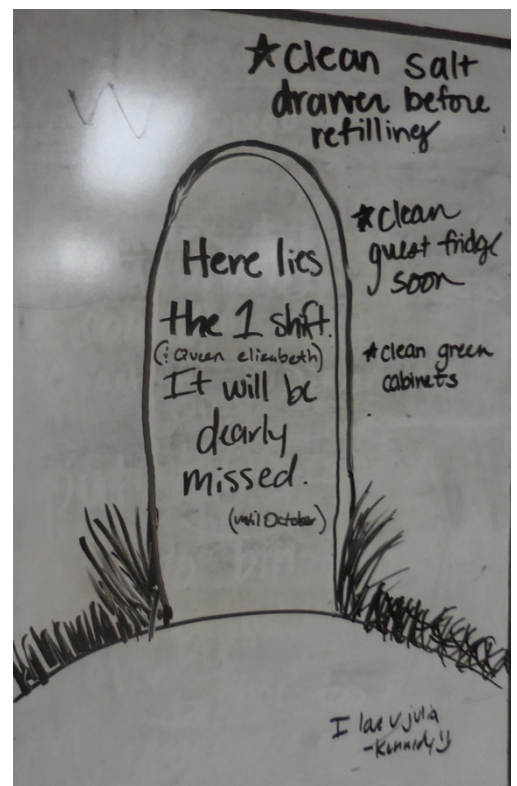 ★clean salt
drawer before
refilling
★clean
guest fridge
soon
★clean green
cabinets
Here lies
the 1 shift.
(& Queen elizabeth)
It will be
dearly
missed.
(until October)
I love u julia
-Kennedy :)